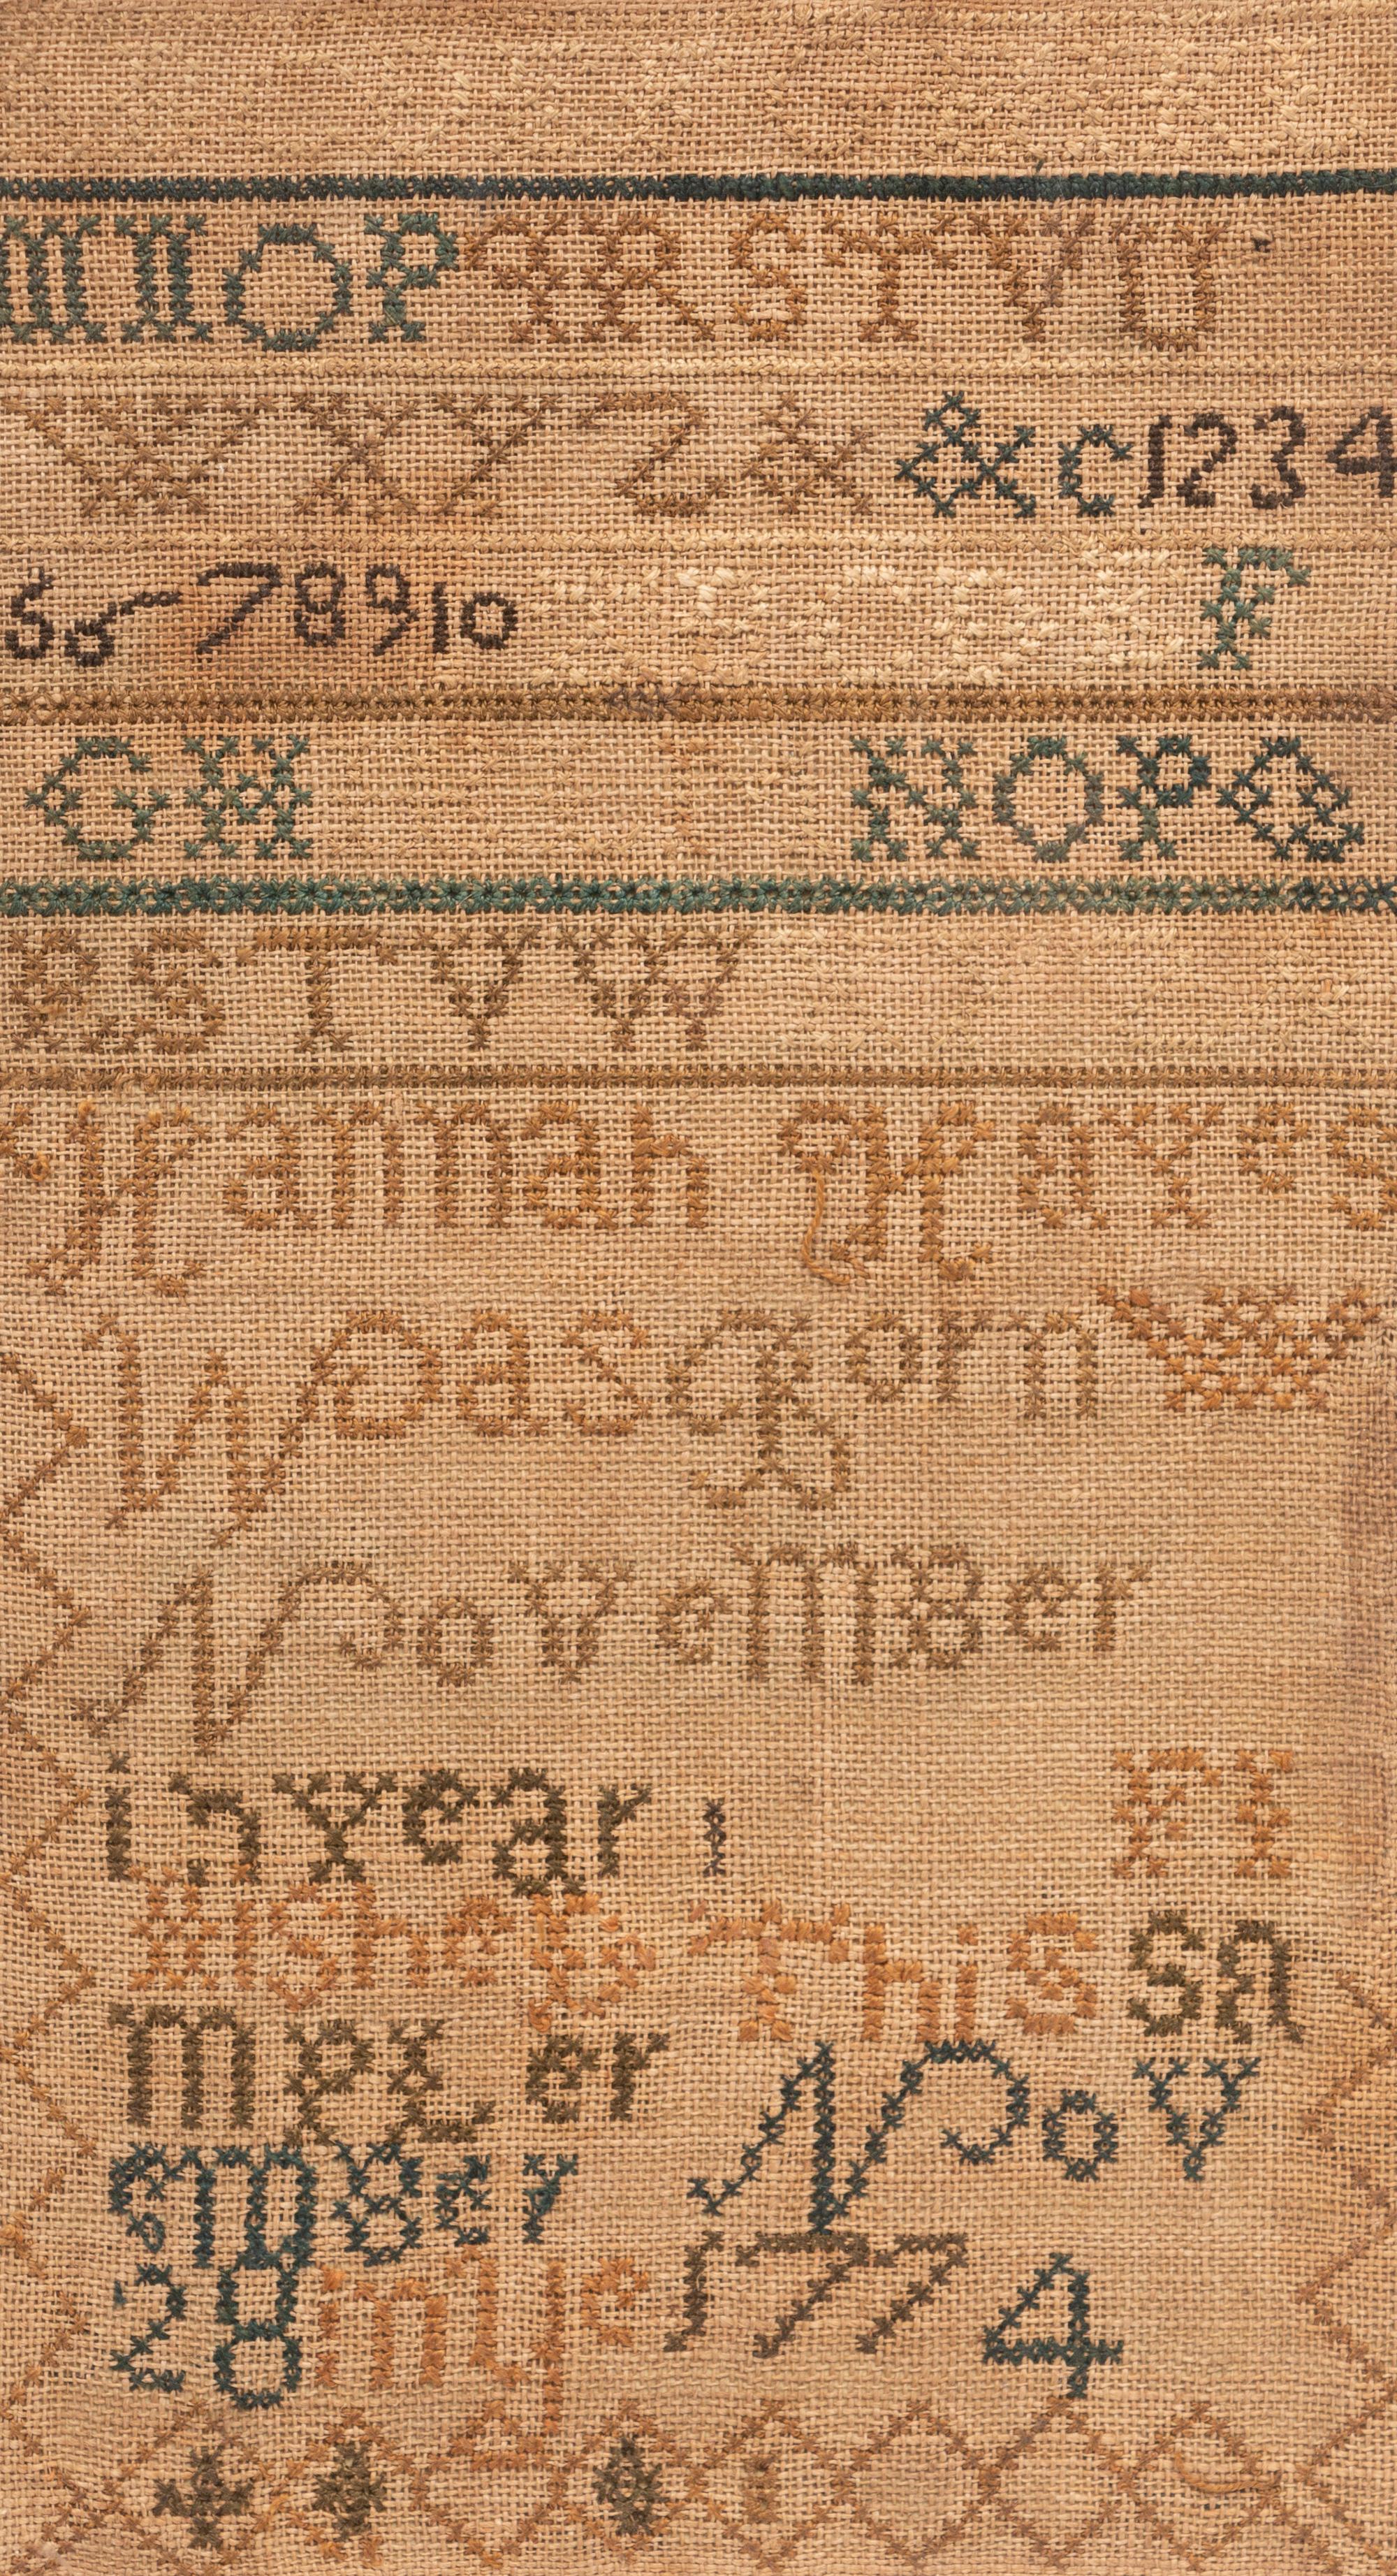 M N O P Q R S T V U
W X Y Z & & C 1 2 3 4
5 6 7 8 9 10 F
G H N O P Q
R S T V W
Hannah Hayes
Was Born
NoveMBer
15 year FI
NISheD ThiS SA
MPL er Nov
eMBer
28 in ye 1774